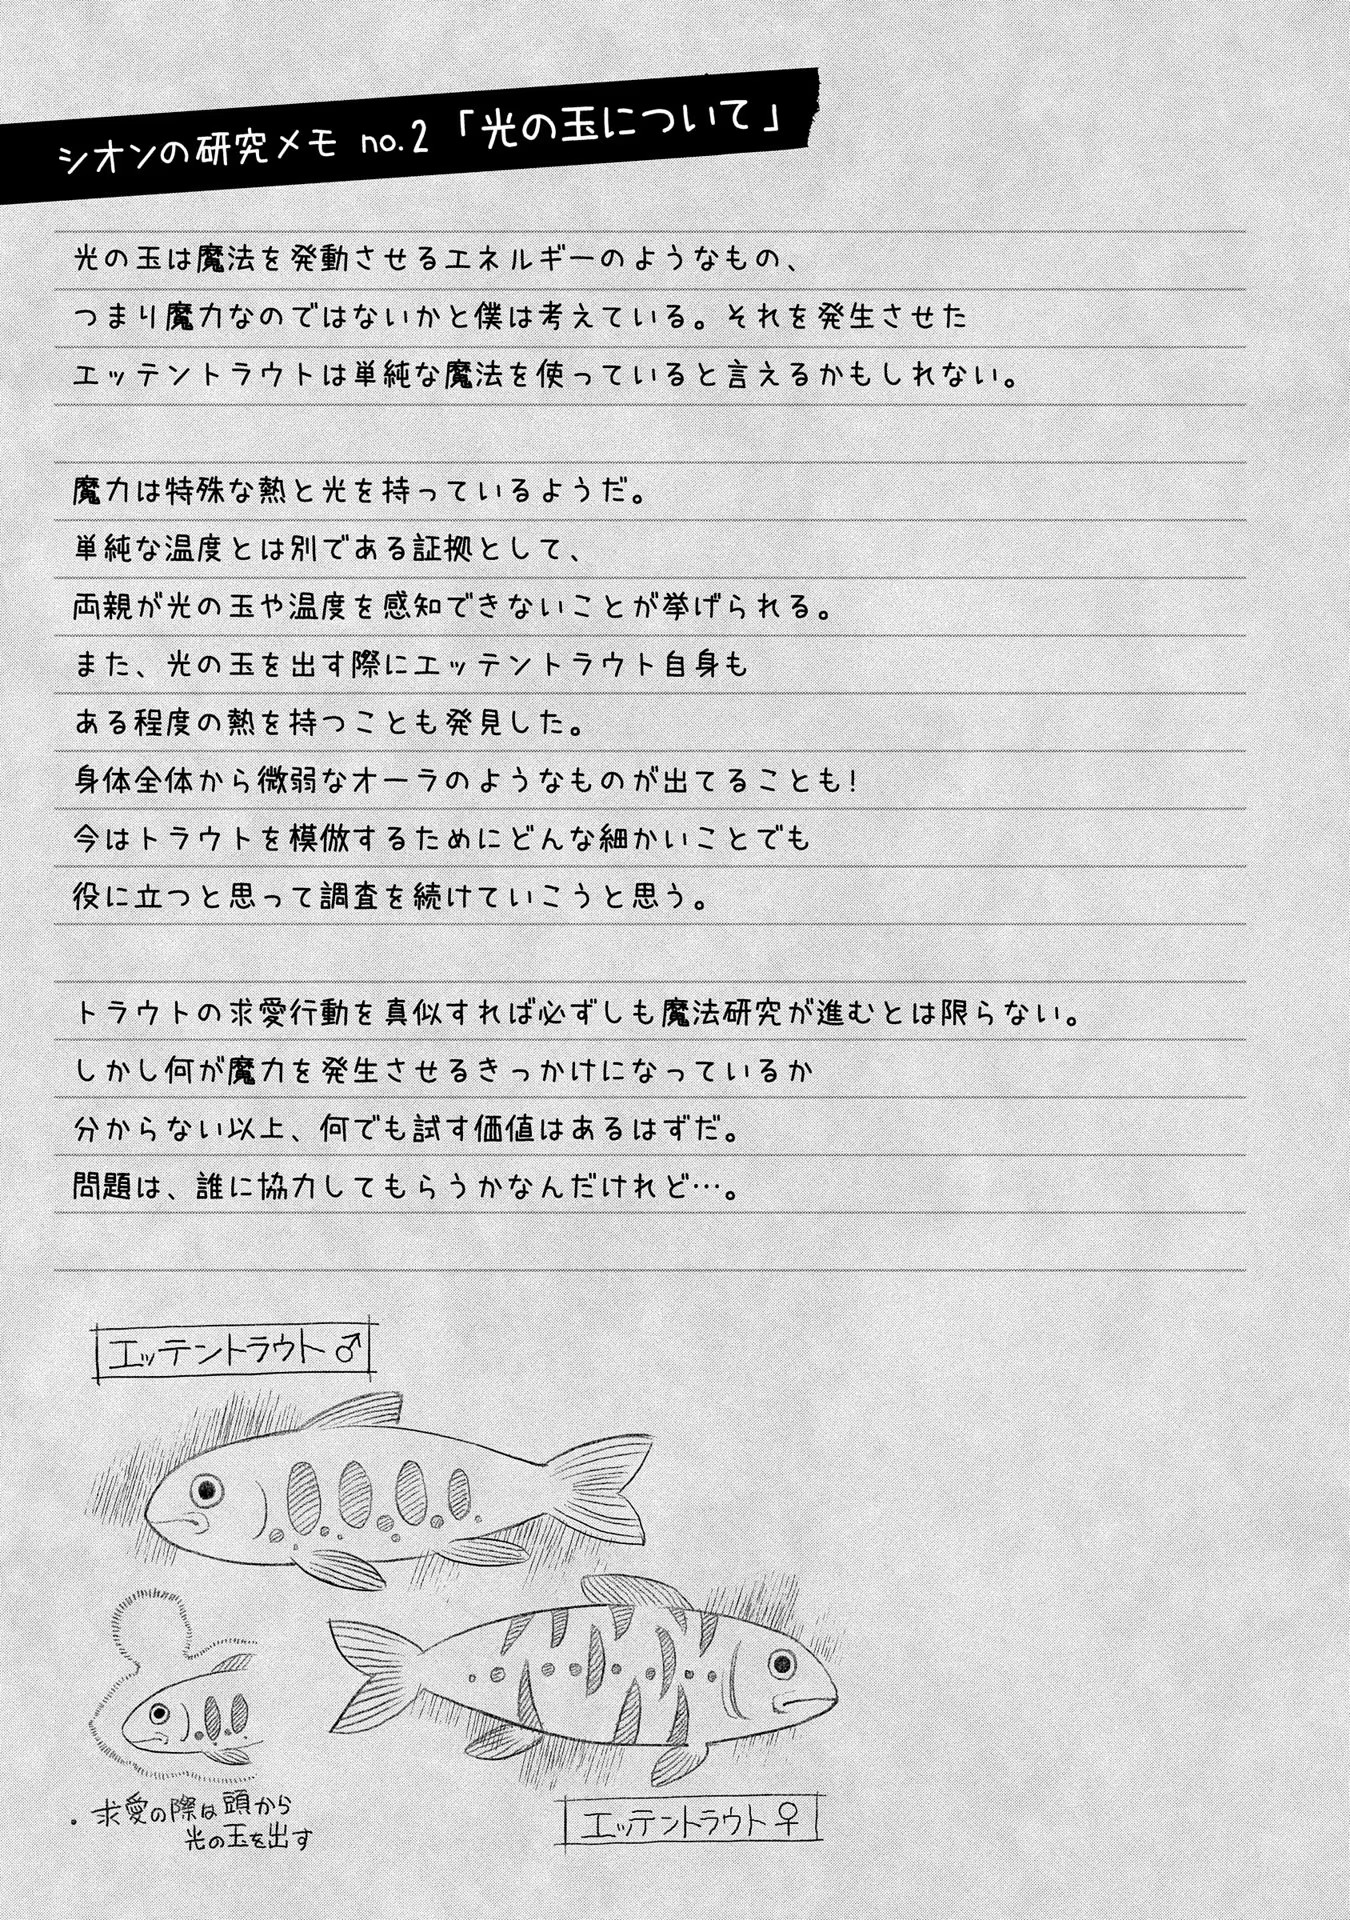 シオンの研究メモ no.2「光の玉について」
光の玉は魔法を発動させるエネルギーのようなもの、
つまり魔力なのではないかと僕は考えている。それを発生させた
エッテントラウトは単純な魔法を使っていると言えるかもしれない。
魔力は特殊な熱と光を持っているようだ。
単純な温度とは別である証拠として、
両親が光の玉や温度を感知できないことが挙げられる。
また、光の玉を出す際にエッテントラウト自身も
ある程度の熱を持つことも発見した。
身体全体から微弱なオーラのようなものが出てることも!
今はトラウトを模倣するためにどんな細かいことでも
役に立つと思って調査を続けていこうと思う。
トラウトの求愛行動を真似すれば必ずしも魔法研究が進むとは限らない。
しかし何が魔力を発生させるきっかけになっているか
分からない以上、何でも試す価値はあるはずだ。
問題は、誰に協力してもらうかなんだけれど…。
エッテントラウト♂
・求愛の際は頭から
光の玉を出す
エッテントラウト♀